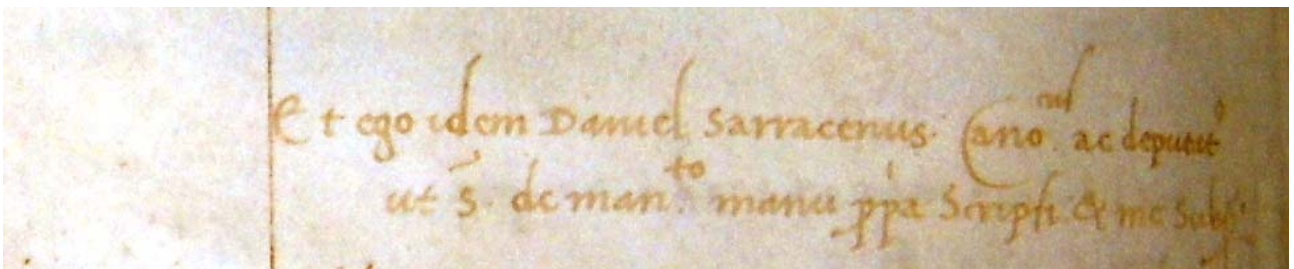 Et ego idem Daniel Sarracenus. Cano.cus ac deputat9
ut s̄. de man.to manu ppa Scripsi & me Subs.